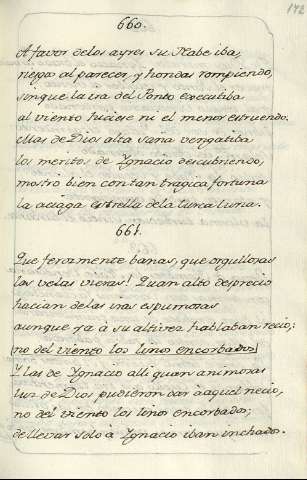 172
660.
A favor de los ayres su Nabe iba,
negra al parecer, y hondas rompiendo,
sin que la ira del Ponto executiba
al viento hiciese ni el menor estruendo.
Mas de Dios alta saña vengatiba
los meritos de Ygnacio descubriendo,
mostro bien con tan tragica fortuna
la aciaga estrella de la turca Luna.
661.
Que feramente banas, que orgullosas
las velas vieras! Quan alto desprecio
hacian de las iras espumosas
aunque ya à su altivez hablaban recio;
no del viento los linos encorbados
Y las de Ygnacio alli quan animosas
luz de Dios pudieron dar à aquel necio,
no del viento los linos encorbados;
de llevar solo à Ygnacio iban inchados.